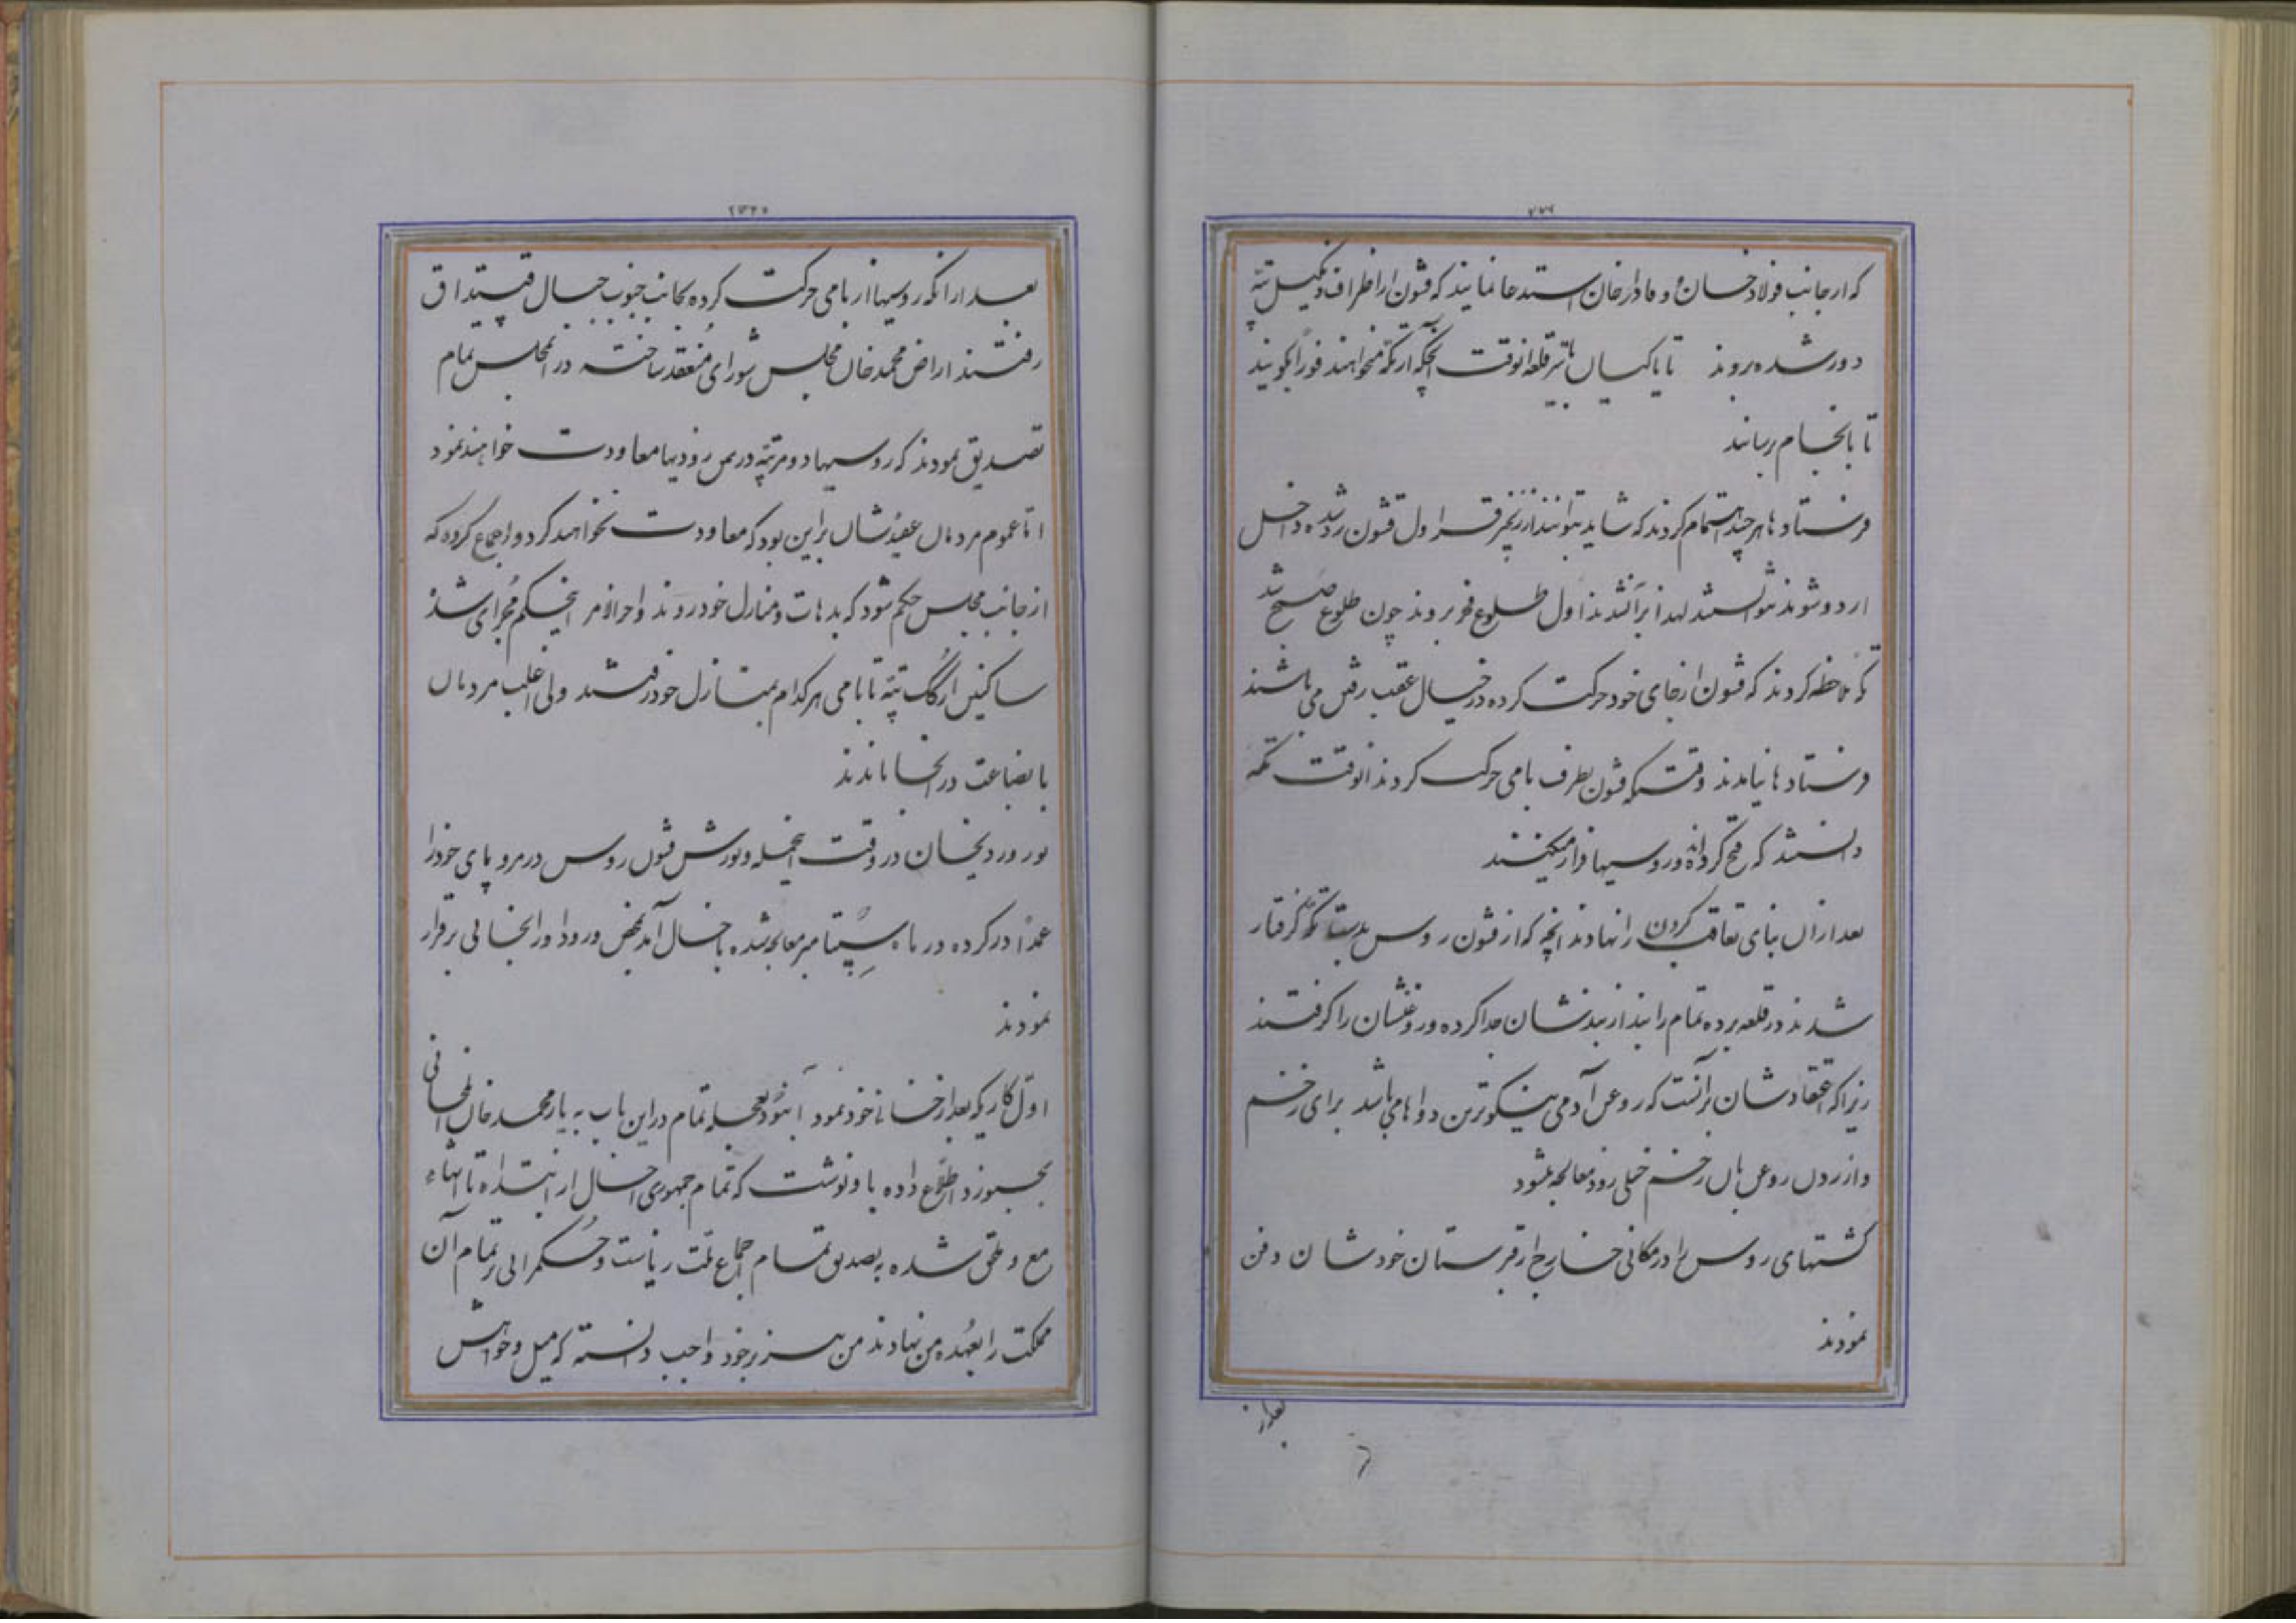 که از جانب فولاد خان و مادر خان استدعا نمایند که قشون از اطراف دنگیل تپه
دور شده بروند تا پاکسیان با سر قلعه انوقت آنچکه از تکه میخواهند فوراً بگویند
تا بانجام رسانند
فرستادها هرچند اهتمام کردند که شاید بتوانند از زنجیر قراول قشون رد شده داخل
اردو شوند نتوانستند لهذا بر آن شدند اول طلوع فجر بروند چون طلوع صبح شد
تکه ملاحظه کردند که قشون از جای خود حرکت کرده در خیال عقب رفتن می باشند
فرستادها نیامدند وقتیکه قشون بطرف بامی حرکت کردند انوقت تکه
دانستند که فتح کرده‌اند و روسیها فرار میکنند
بعد از آن بنای تعاقب کردن را نهادند انچه که از قشون روس بدست تکه گرفتار
شدند در قلعه برده تمام را بند از بندشان جدا کرده و روغنشان را گرفتند
زیرا که اعتقادشان بر آنست که روغن آدمی نیکوترین دواها می باشد برای زخم
و از زدن روغن بآن زخم خیلی زود معالجه میشود
کشتهای روس را در مکانی خارج از قبرستان خودشان دفن
نمودند
بعد از
بعد از آنکه روسیها از بامی حرکت کرده بجانب جنوب جبال قپتداق
رفتند اراض محمد خان مجلس شورای منعقد ساخته در آن مجلس تمام
تصدیق نمودند که روسیها دو مرتبه در همین زودیها معاودت خواهند نمود
اما عموم مردمان عقیدشان بر این بود که معاودت نخواهند کرد و اجماع کرده که
از جانب مجلس حکم شود که بدهات و منازل خود روند و اخرالامر اینحکم مجرای شد
ساکنین از کک تپه تا بامی هر کدام بمنازل خود رفتند ولی اغلب مردمان
با بضاعت در آنجا ماندند
نور وردیخان در وقت حمله و یورش قشون روس در مرو پای خود را
عمداً در کرده در ماه سپتامبر معالجه شده باخال آمد بمحض ورود او را بخانی برقرار
نمودند
اول کاریکه بعد از خانی خود نمود این بود بعجله تمام در این باب به یار محمد خان ایلخانی
بجنورد اطلاع داده باو نوشت که تمام جمهوری اخال از ابتداء تا انتهاء
جمع و ملحق شده بتصدیق تمام اجماع ملت ریاست و حکمرانی تمام آن
مملکت را بعهده من نهادند من نیز بر خود واجب دانسته که میل و خواهش